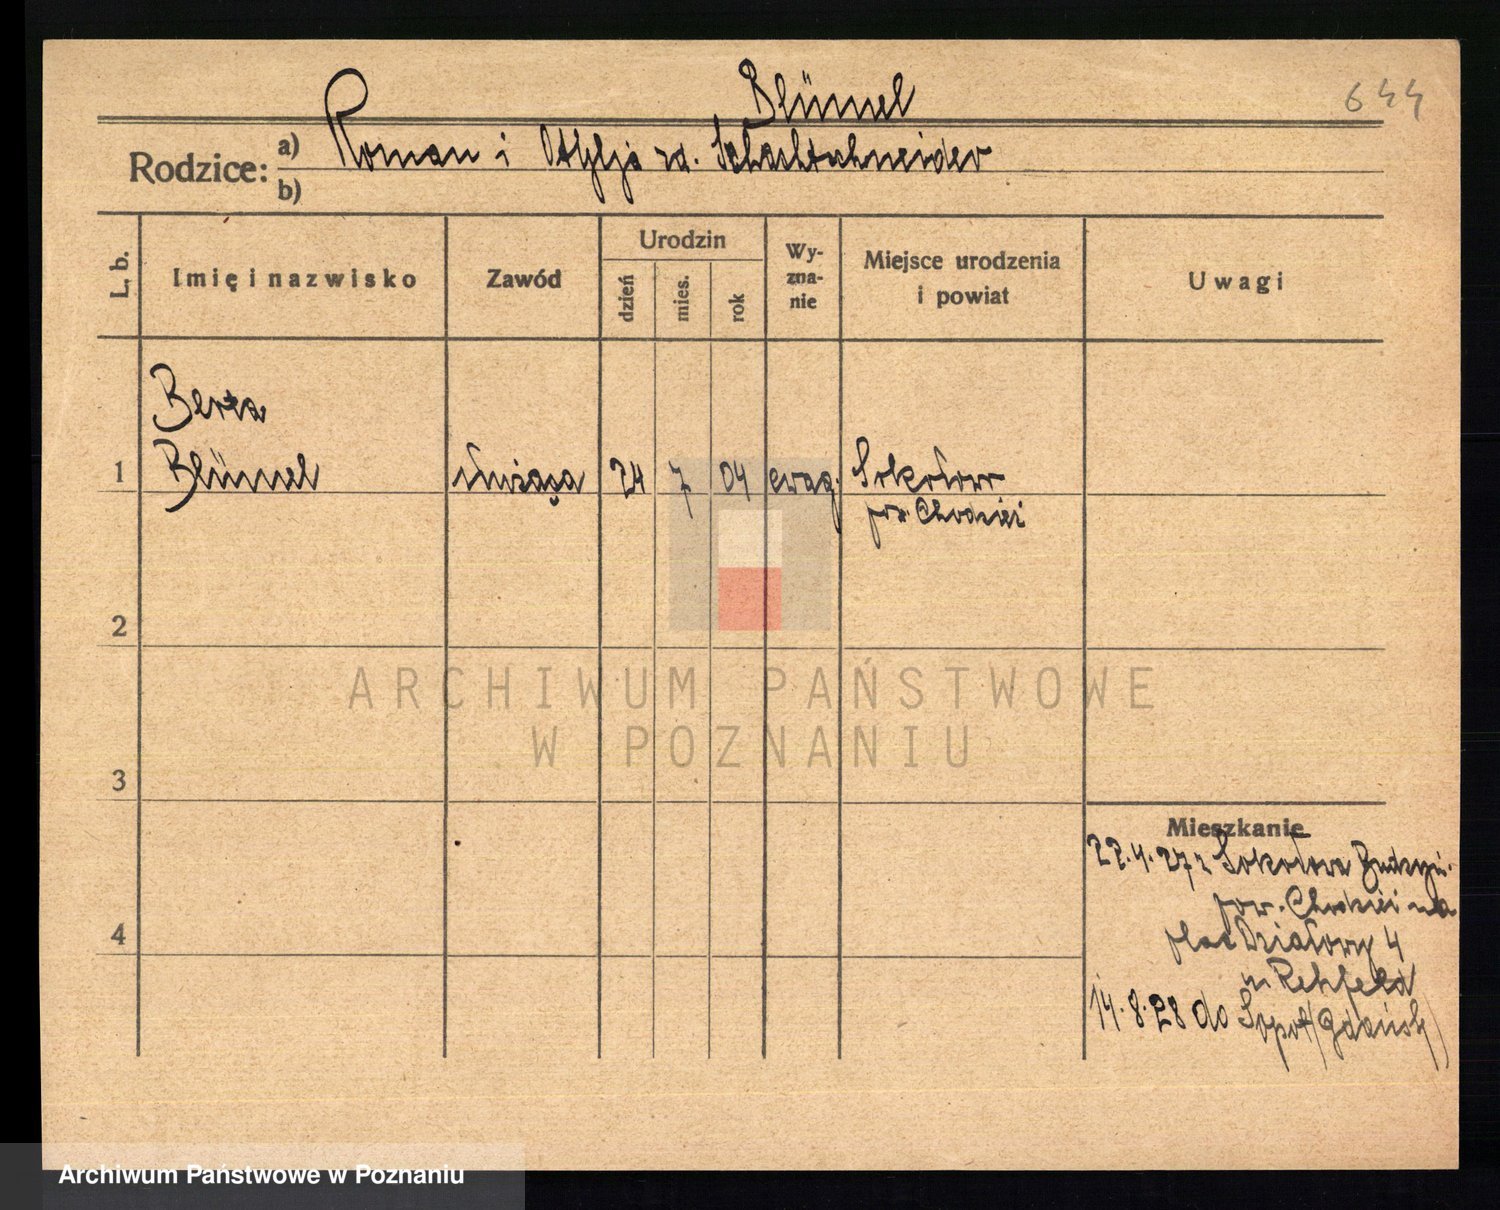 Blümel
644
Rodzice:
a) Roman i Otylja zd. Schachtschneider
b)
L. b.
Imię i nazwisko
Zawód
Urodzin
dzień
mies.
rok
Wy-
zna-
nie
Miejsce urodzenia
i powiat
Uwagi
Berta
1 Blümel służąca 24 7 04 ewag. Sokołowo
pow. Chodzież
2
3
4
Mieszkanie
22.4.27 z Sokołowa Budzyń.
pow. Chodzież na
plac Działowy 4
u Rehfeld
14.8.28 do Sopot (Gdańsk)
ARCHIWUM PAŃSTWOWE
W POZNANIU
Archiwum Państwowe w Poznaniu